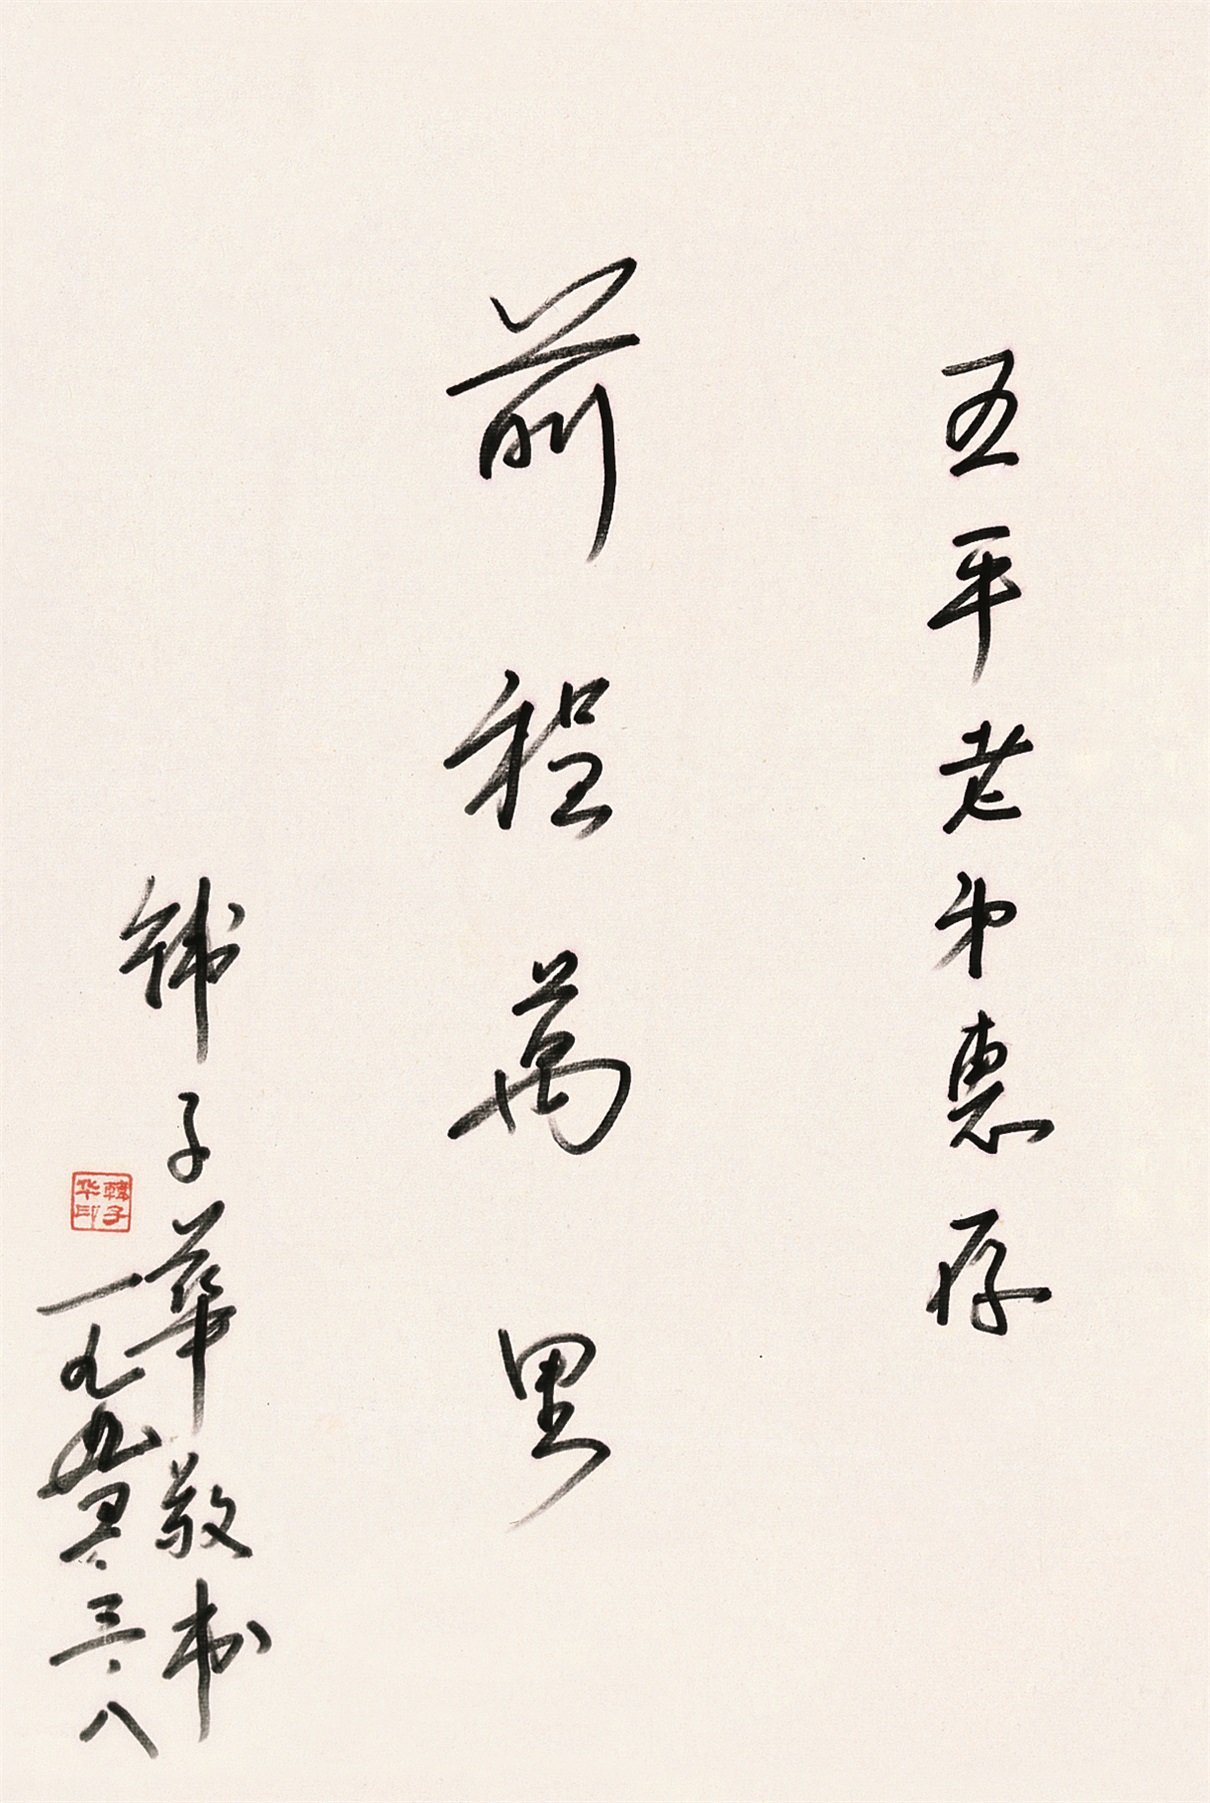 五平老弟惠存
前程萬里
韩子華敬书
一九九五、三、八
韓子华印